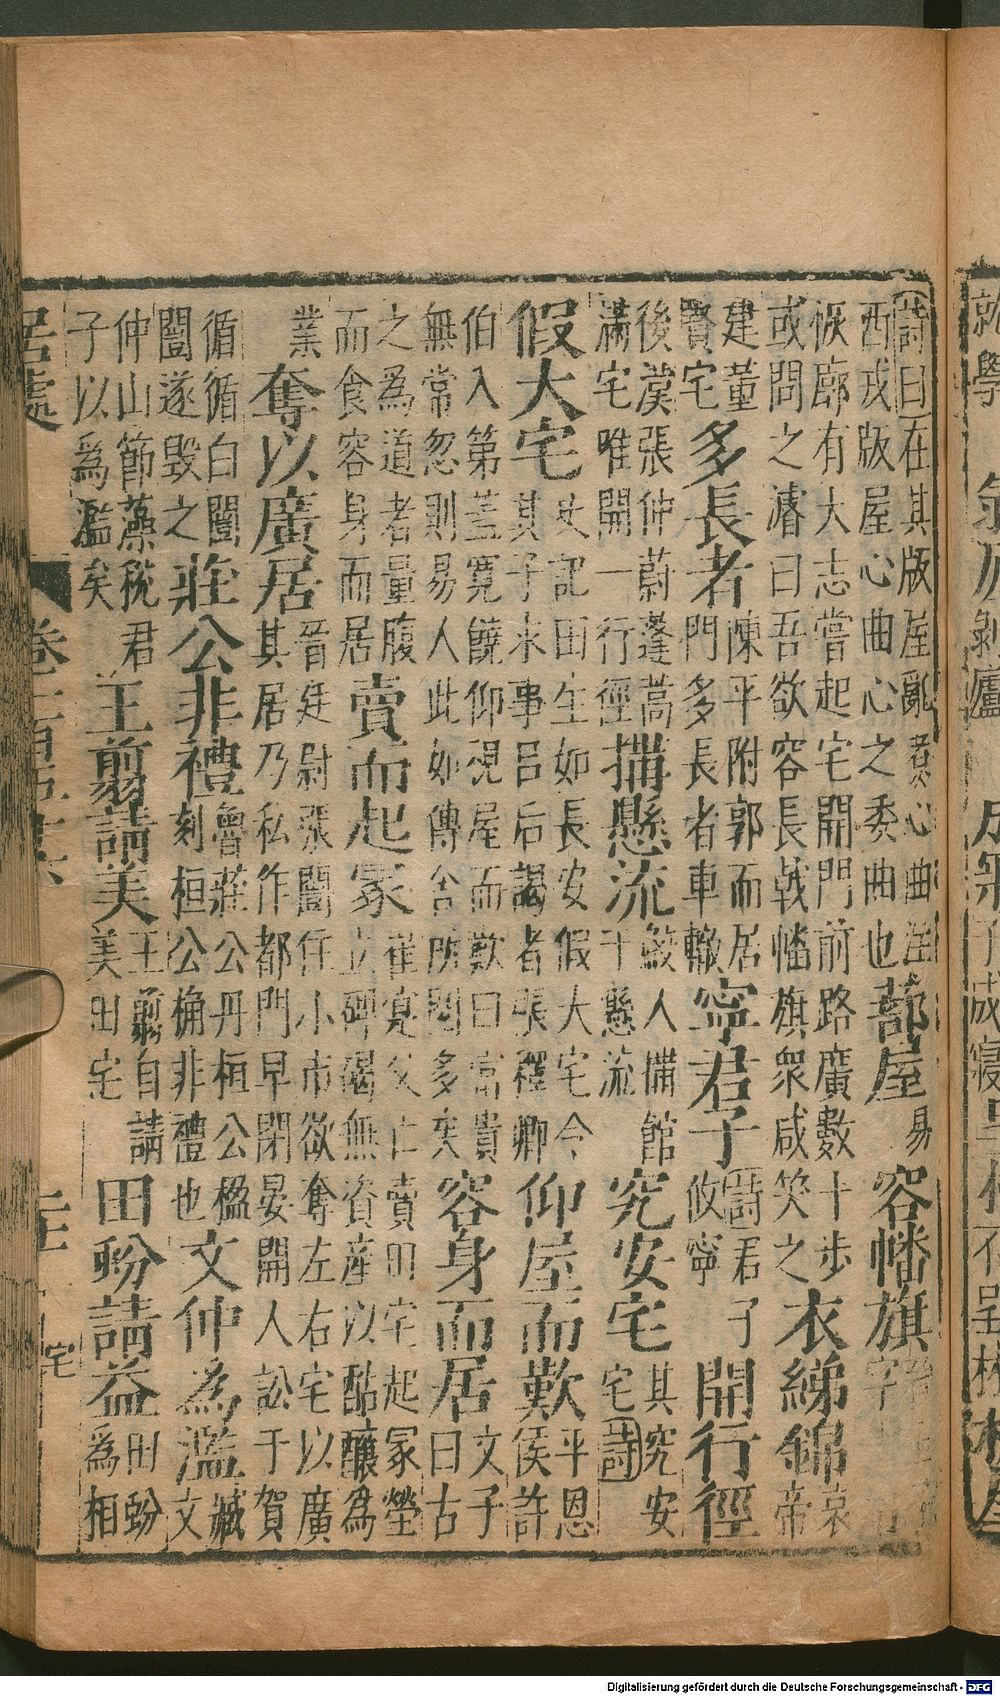 (詩)曰在其版屋亂我心曲注
西戎版屋心曲心之委曲也
蔀屋
易
容幡旗
字
恢廓有大志嘗起宅開門前路廣數十步
或問之濬曰吾欲容長戟幡旗衆咸笑之
衣綈錦
哀
帝
建董
賢宅
多長者
陳平附郭而居
門多長者車轍
寧君子
(詩)君子
攸寧
開行徑
後漢張仲蔚蓬蒿
滿宅唯開一行徑
搆懸流
鮫人備館
于懸流
究安宅
其究安
宅(詩)
假大宅
史記田生如長安假大宅今
其子求事呂后謁者張釋卿
仰屋而歎
平恩
侯許
伯入第蓋寬饒仰視屋而歎曰富貴
無常忽則易人此如傳舍所閱多矣
容身而居
文子
曰古
之為道者量腹
而食容身而居
賣而起冢
崔寔父亡賣田宅起冢塋
立碑碣無資產以酤釀為
業
奪以廣居
晉廷尉張闓住小市欲奪左右宅以廣
其居乃私作都門早閉晏開人訟于賀
循循白闓
闓遂毀之
莊公非禮
魯莊公丹桓公楹
刻桓公桷非禮也
文仲為濫
臧
文
仲山節藻梲君
子以為濫矣
王翦請美
王翦自請
美田宅
田蚡請益
田蚡
為相
居處
宅
Digitalisierung gefördert durch die Deutsche Forschungsgemeinschaft - DFG